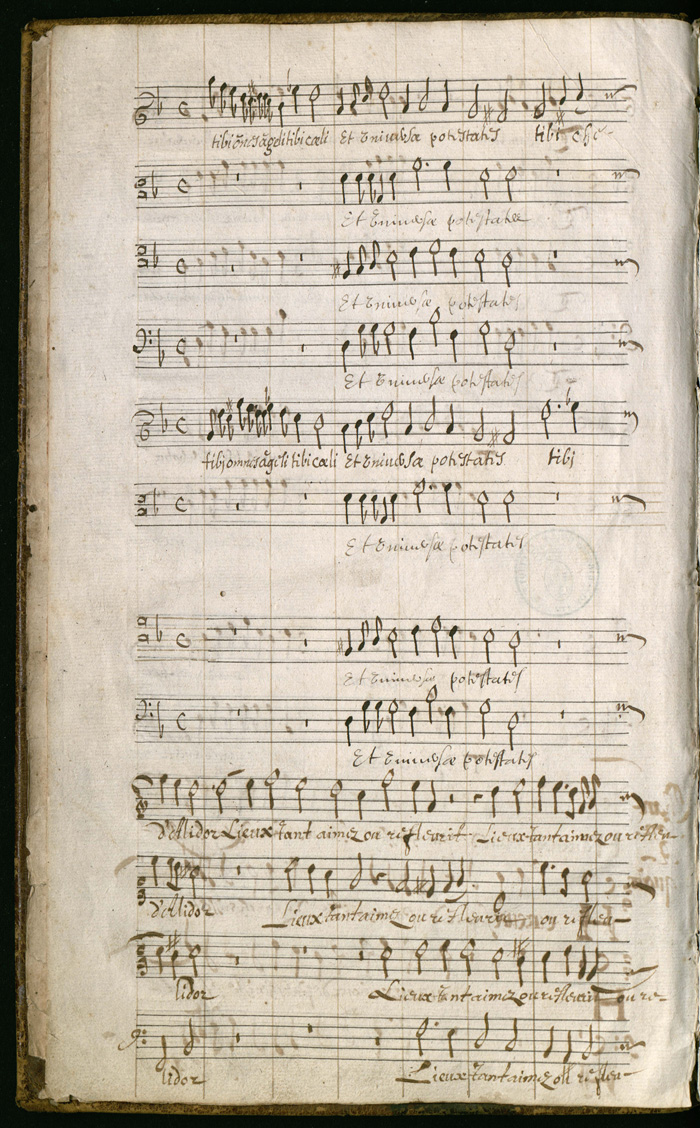 tibi ōnes āgeli tibi cæli Et Universæ potestates tibi che-
Et Universæ potestates
Et Universæ potestates
Et Universæ potestates
tibj omnes āgeli tibi cæli Et Universæ potestates tibj
Et Universæ potestates
Et Universæ potestates
Et Universæ potestates
d'Alidor Lieux tant aimez ou refleurit Lieux tant aimez ou refleu-
d'Alidor Lieux tant aimez ou ou refleu-
lidor Lieux tant aimez ou refleurit ou re-
lidor Lieux tant aimez ou refleu-